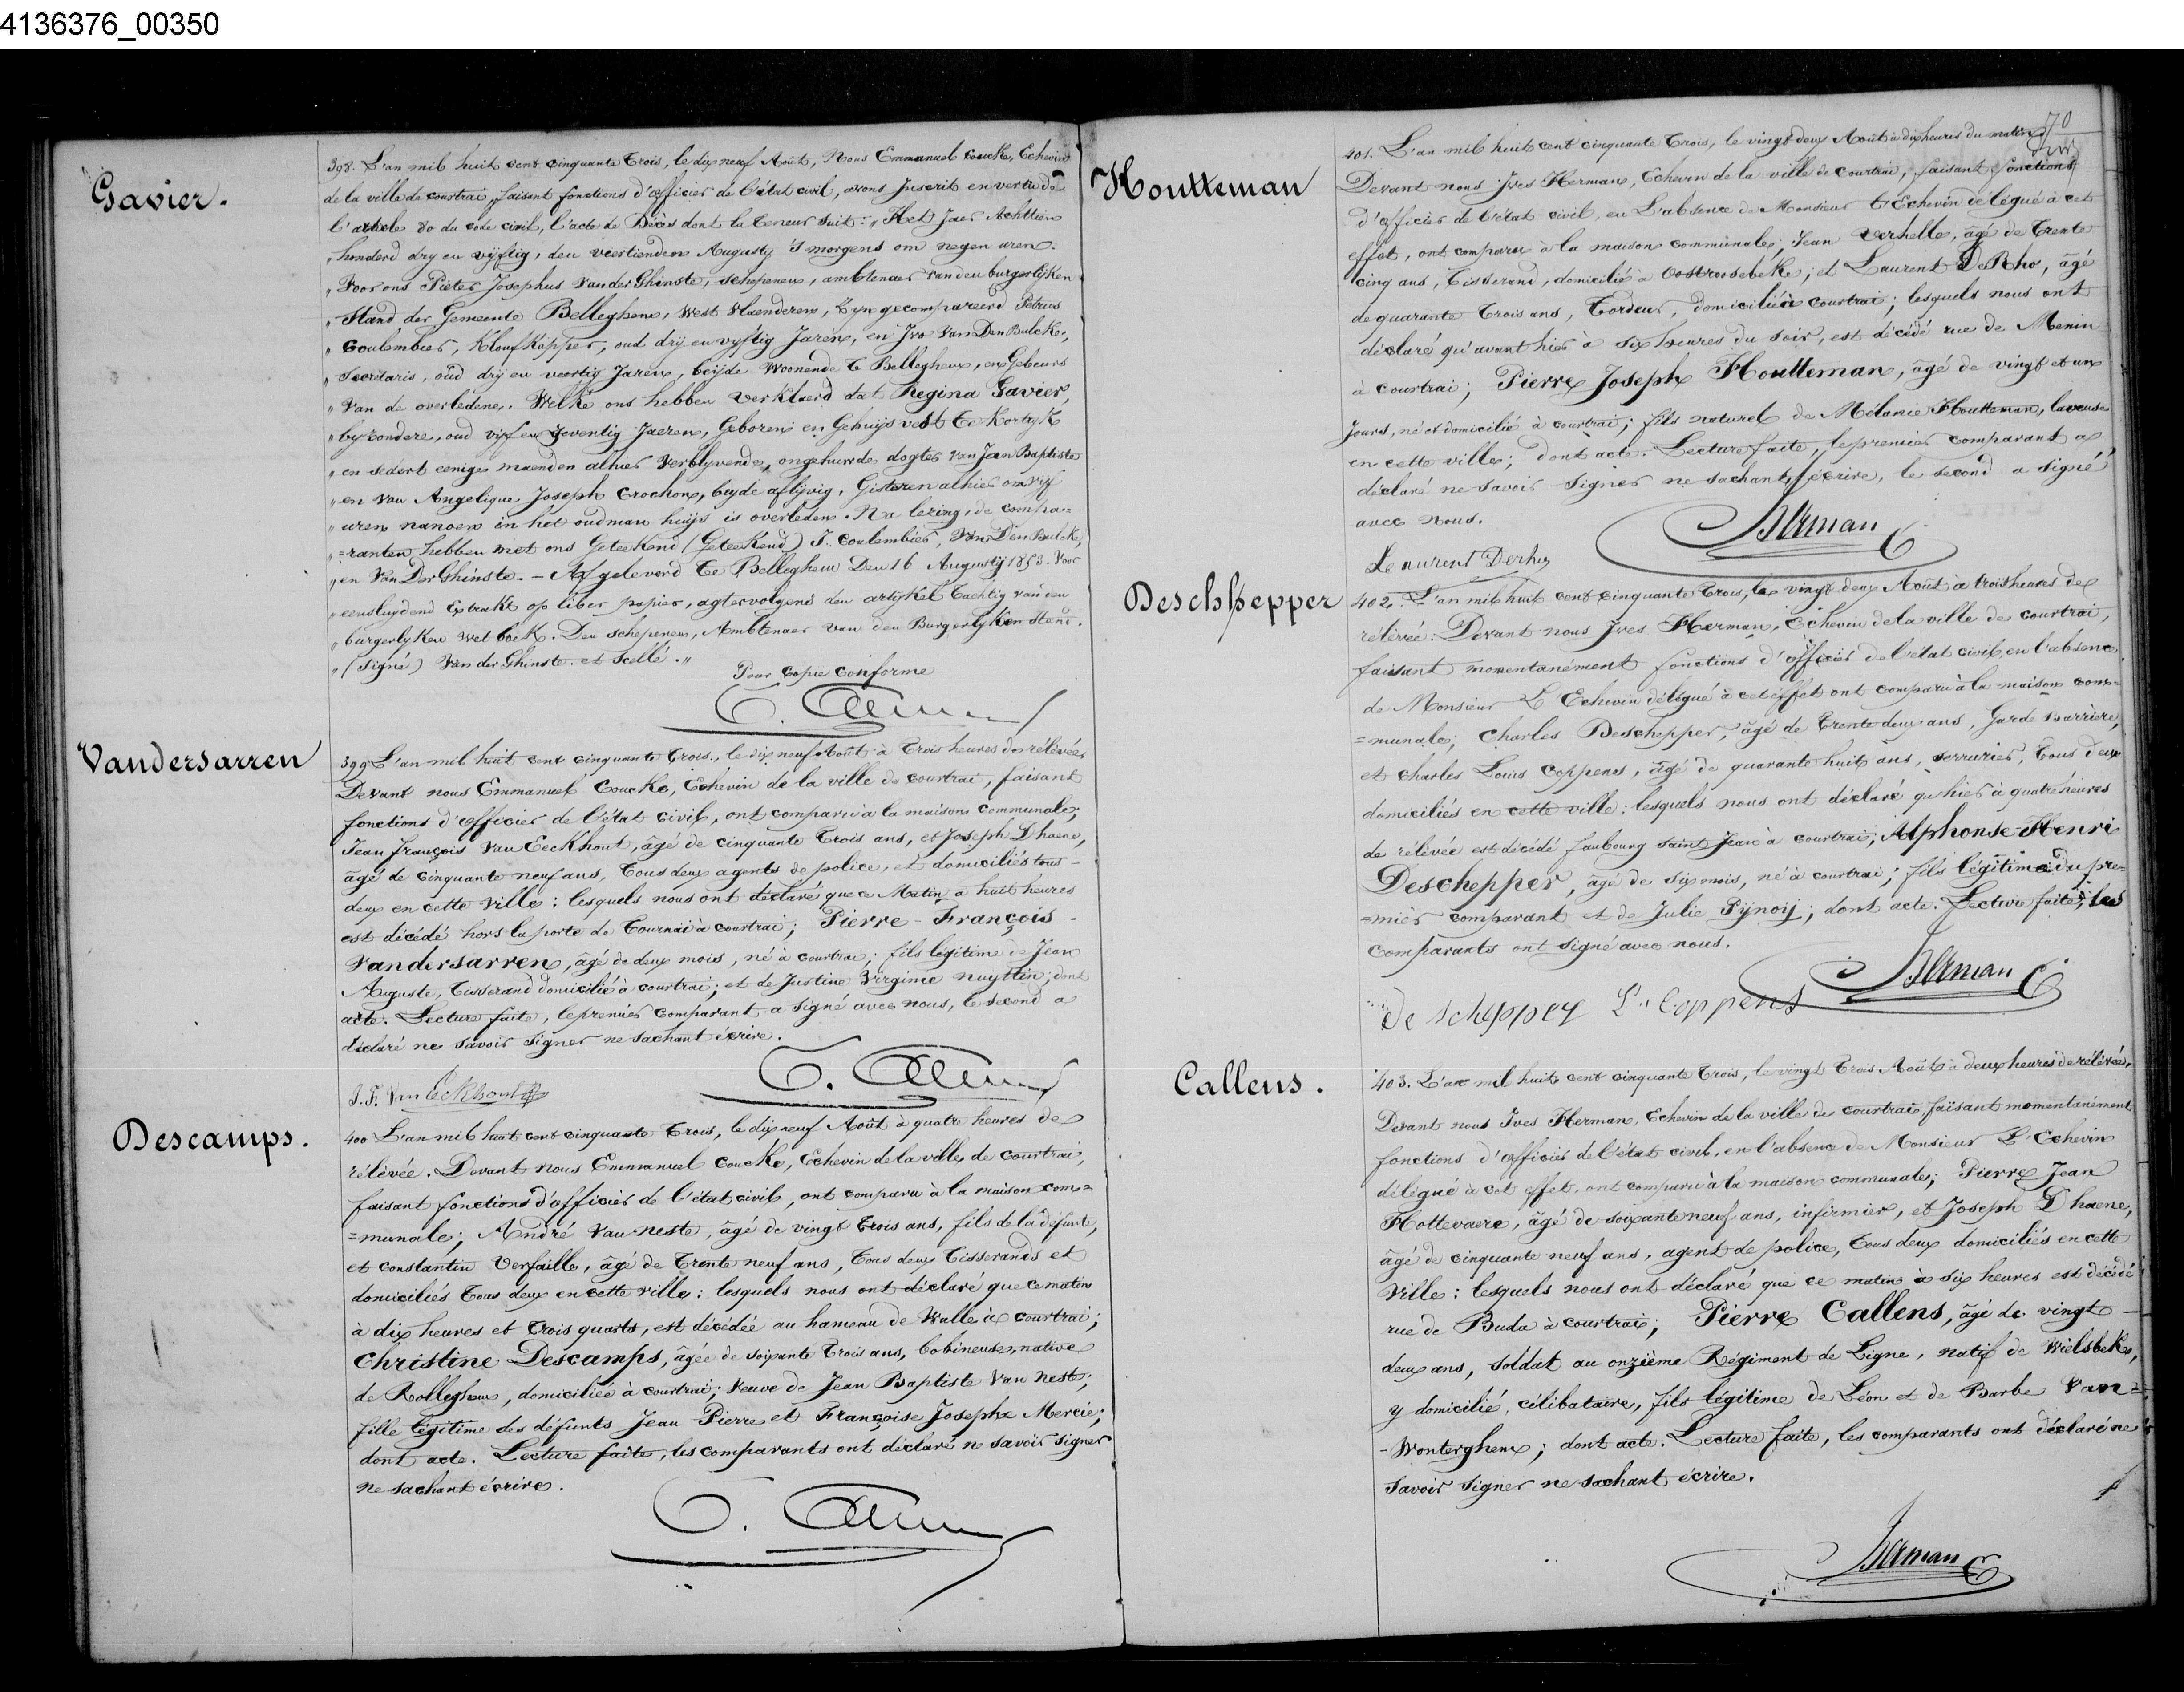 4136376_00350
Gavier.
398. L'an mil huit cent cinquante trois, le dix neuf Août, Nous Emmanuel Coucke, Echevin
de la ville de courtrai, faisant fonctions d'officier de l'état civil, avons Inscrit en vertu de
l'article 80 du code civil, l'acte de Décès dont la teneur suit: „Het Jaer Achttien
„honderd dry en vyftig, den veertienden Augusty 's morgens om negen uren.
„Voor ons Pieter Josephus Vander Ghinste, schepenen, ambtenaer van den burgerlyken
„Stand der Gemeente Belleghem, West Vlaenderen, Zyn gecompareerd Petrus
„Coulembier, Klouf Kapper, oud dry en vyftig Jaren, en Ivo Van Den Bulcke,
„Secretaris, oud dry en veertig Jaren, beijde Woonende te Belleghem, en Gebeurs
„Van de overledene. Welke ons hebben Verklaerd dat Regina Gavier,
„byzondere, oud vijf en zeventig Jaeren, Geboren en Gehuijsvest te Kortryk
„en sedert eenige maenden alhier Verblyvende, ongehuwde dogter van Jan Baptiste
„en van Angelique Joseph Crochon, beyde aflijvig, Gisteren alhier om vijf
„uren nanoen in het oudman huijs is overleden. Na lezing, de compa=
„=ranten hebben met ons Geteekend (Geteekend) P. Coulembier, Van Den Bulcke,
„en Van Der Ghinste. — Afgeleverd te Belleghem Den 16 Augustij 1853. Voor
„eensluydend Extrakt op liber papier, agtervolgens den artykel tachtig van den
„burgerlyken wet boek. Den schepenen, Ambtenaer van den Burgerlyken Stand.
„(signé) Van der Ghinste. et scellé.„
Pour Copie Conforme
Vandersarren
399 L'an mil huit cent cinquante trois, le dix neuf Août à trois heures de rélévée,
Devant nous Emmanuel Coucke, Echevin de la ville de courtrai, faisant
fonctions d'officier de l'état civil, ont comparu à la maison communale;
Jean François Van Eeckhout, âgé de cinquante trois ans, et Joseph Dhaene,
âgé de cinquante neuf ans, tous deux agents de police, et domiciliés tous-
deux en cette Ville: lesquels nous ont déclaré que ce Matin à huit heures
est décédé hors la porte de Tournai à courtrai; Pierre-François-
Vandersarren, âgé de deux mois, né à courtrai; fils légitime de Jean
Auguste, tisserand domicilié à courtrai; et de Justine Virginie nuyttin; dont
acte. Lecture faite, le premier comparant a signé avec nous, le second a
déclaré ne savoir signer ne sachant écrire.
J. F. Van Eckhoutte
Descamps.
400 L'an mil huit cent cinquante trois, le dix neuf Août à quatre heures de
rélévée. Devant nous Emmanuel Coucke, Echevin de la ville de courtrai,
faisant fonctions d'officier de l'état civil, ont comparu à la maison com=
=munale; André Van Neste, âgé de vingt trois ans, fils de la défunte,
et constantin Verfaille, âgé de trente neuf ans, tous deux tisserands et
domiciliés tous deux en cette ville: lesquels nous ont déclaré que ce matin
à dix heures et trois quarts, est décédée au hameau de Walle à courtrai;
Christine Descamps, âgée de soixante trois ans, bobineuse, native
de Rolleghem, domiciliée à courtrai; veuve de Jean Baptiste Van Neste;
fille légitime des défunts Jean Pierre et Françoise Josephe Mercie;
dont acte. Lecture faite, les comparants ont déclaré ne savoir signer
ne sachant écrire.
70
Houtteman
401. L'an mil huit cent cinquante trois, le vingt deux Août à dix heures du matin
Devant nous Ives Herman, Echevin de la ville de courtrai, faisant fonctions
d'officier de l'état civil, en L'absence de Monsieur l'Echevin délégué à cet
effet, ont comparu à la maison communale; Jean Verhelle, âgé de trente
cinq ans, tisserand, domicilié à Oostroosebeke; et Laurent DeRho, âgé
de quarante trois ans, tordeur, domicilié à courtrai; lesquels nous ont
déclaré qu'avant hier à six heures du soir, est décédé rue de Menin
à courtrai; Pierre Joseph Houtteman, âgé de vingt et un
Jours, né et domicilié à courtrai; fils naturel de Mélanie Houtteman, laveuse
en cette ville; dont acte. Lecture faite, le premier comparant a
déclaré ne savoir signer ne sachant écrire, le second a signé
avec nous.
Herman
Laurent Derho
Deschepper
402. L'an mil huit cent cinquante trois, le vingt deux Août à trois heures de
rélévée. Devant nous Ives Herman, Echevin de la ville de courtrai,
faisant momentanément fonctions d'officier de l'état civil, en l'absence
de Monsieur L'Echevin délégué à cet effet ont comparu à la maison com=
=munale; Charles Deschepper, âgé de trente deux ans, Garde barrière,
et charles Louis Coppens, âgé de quarante huit ans, serrurier, tous deux
domiciliés en cette ville: lesquels nous ont déclaré qu'hier à quatre heures
de rélévée est décédé faubourg saint Jean à courtrai; Alphonse Henri
Deschepper, âgé de six mois, né à courtrai; fils légitime du pre=
=mier comparant et de Julie Pijnoij; dont acte. Lecture faite, les
comparants ont signé avec nous.
Herman
De scheppey Ls Coppens
Callens.
403. L'an mil huit cent cinquante trois, le vingt trois Août à deux heures de rélévée.
Devant nous Ives Herman, Echevin de la ville de courtrai faisant momentanément
fonctions d'officier de l'état civil, en l'absence de Monsieur L'Echevin
délégué à cet effet, ont comparu à la maison communale; Pierre Jean
Hottevaere, âgé de soixante neuf ans, infirmier, et Joseph Dhaene,
âgé de cinquante neuf ans, agent de police, tous deux domiciliés en cette
Ville: lesquels nous ont déclaré que ce matin à six heures est décédé
rue de Buda à courtrai; Pierre Callens, âgé de vingt-
deux ans, soldat au onzième Régiment de Ligne, natif de Wielsbeke,
y domicilié, célibataire, fils légitime de Léon et de Barbe Van=
-Wonterghem; dont acte. Lecture faite, les comparants ont déclaré ne
savoir signer ne sachant écrire.
Herman